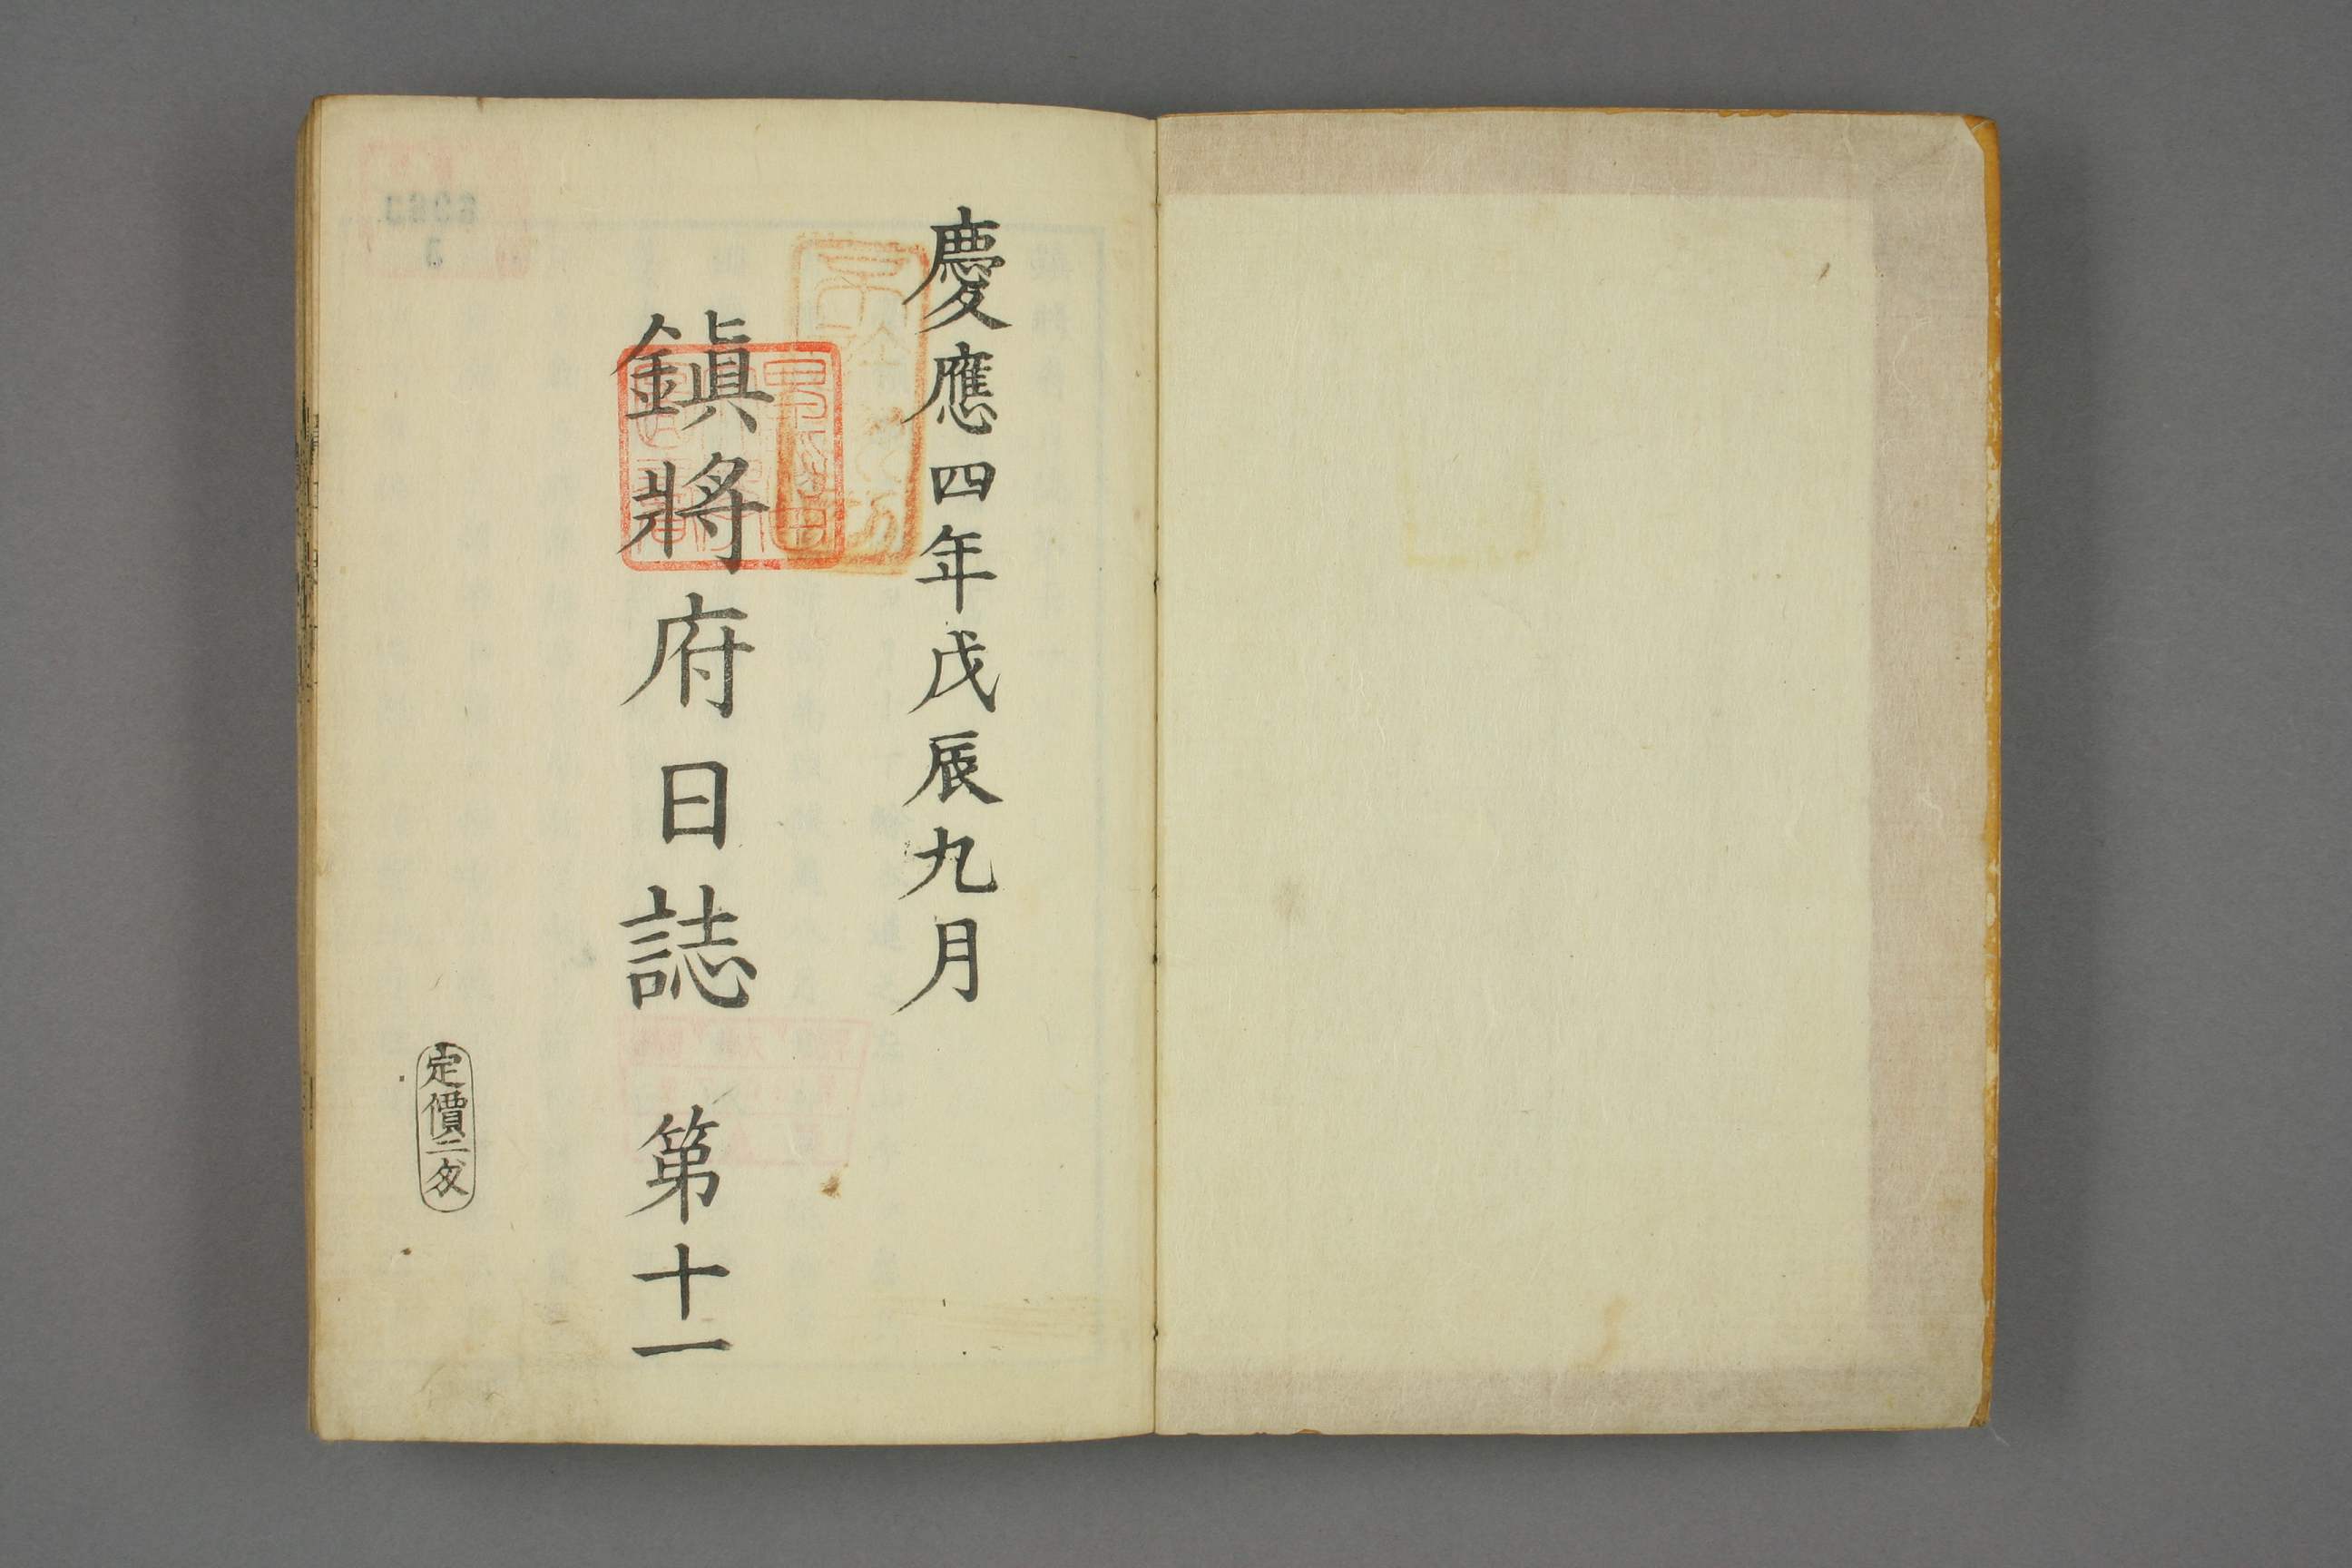 慶應四年戊辰九月
鎭將府日誌 第十一
定價二匁